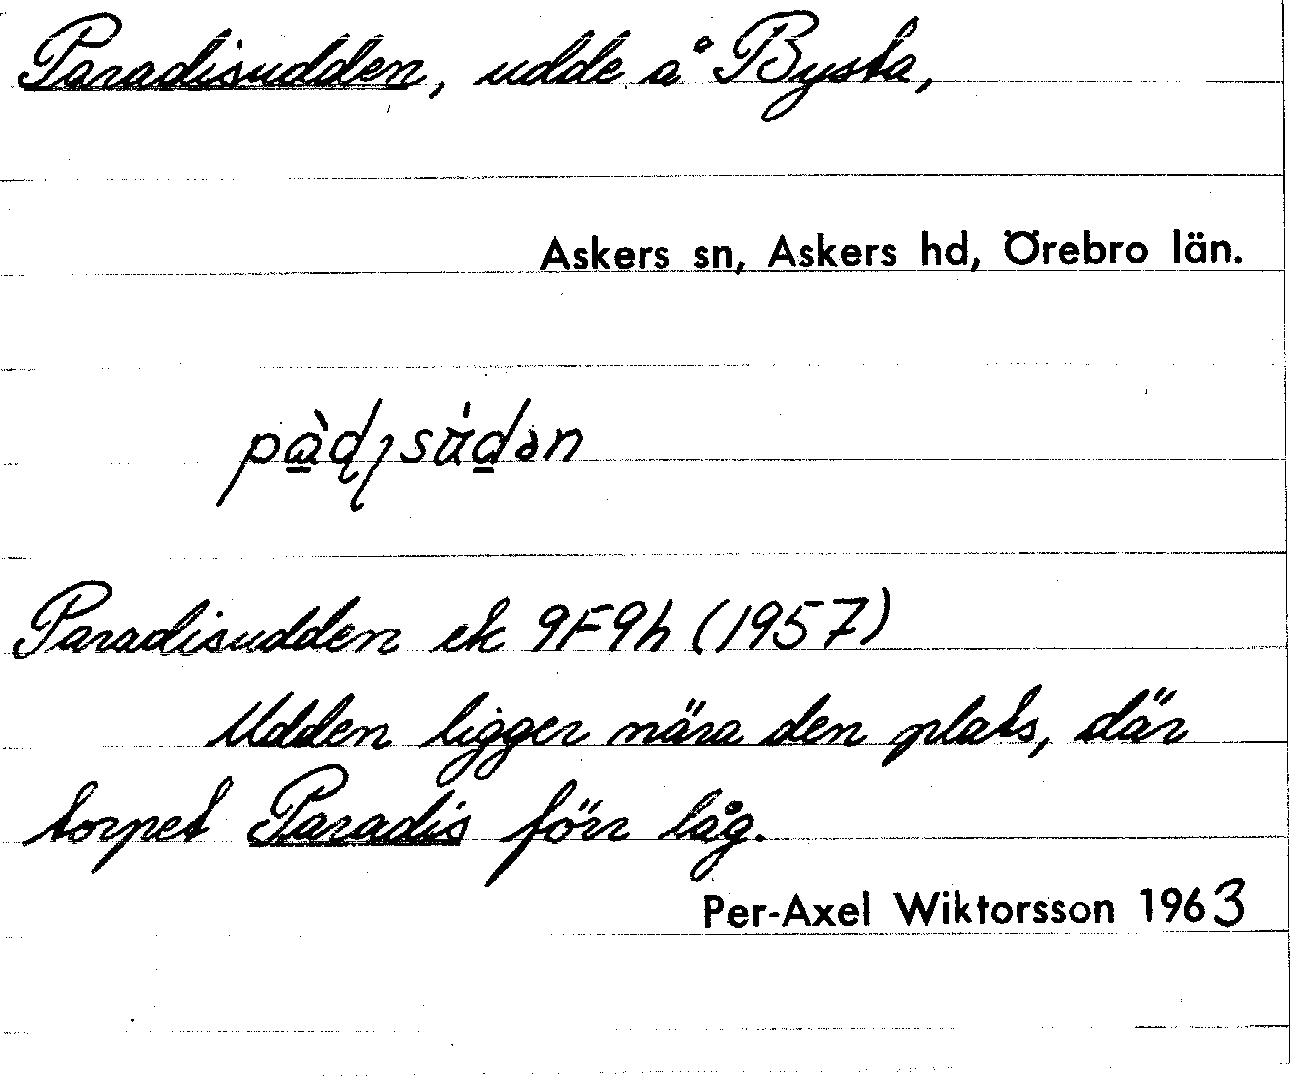 Paradisudden, udde å Bysta,
Askers sn, Askers hd, Örebro län.
Paradisudden ek 9F9h (1957)
Udden ligger nära den plats, där
torpet Paradis förr låg.
Per-Axel Wiktorsson 1963